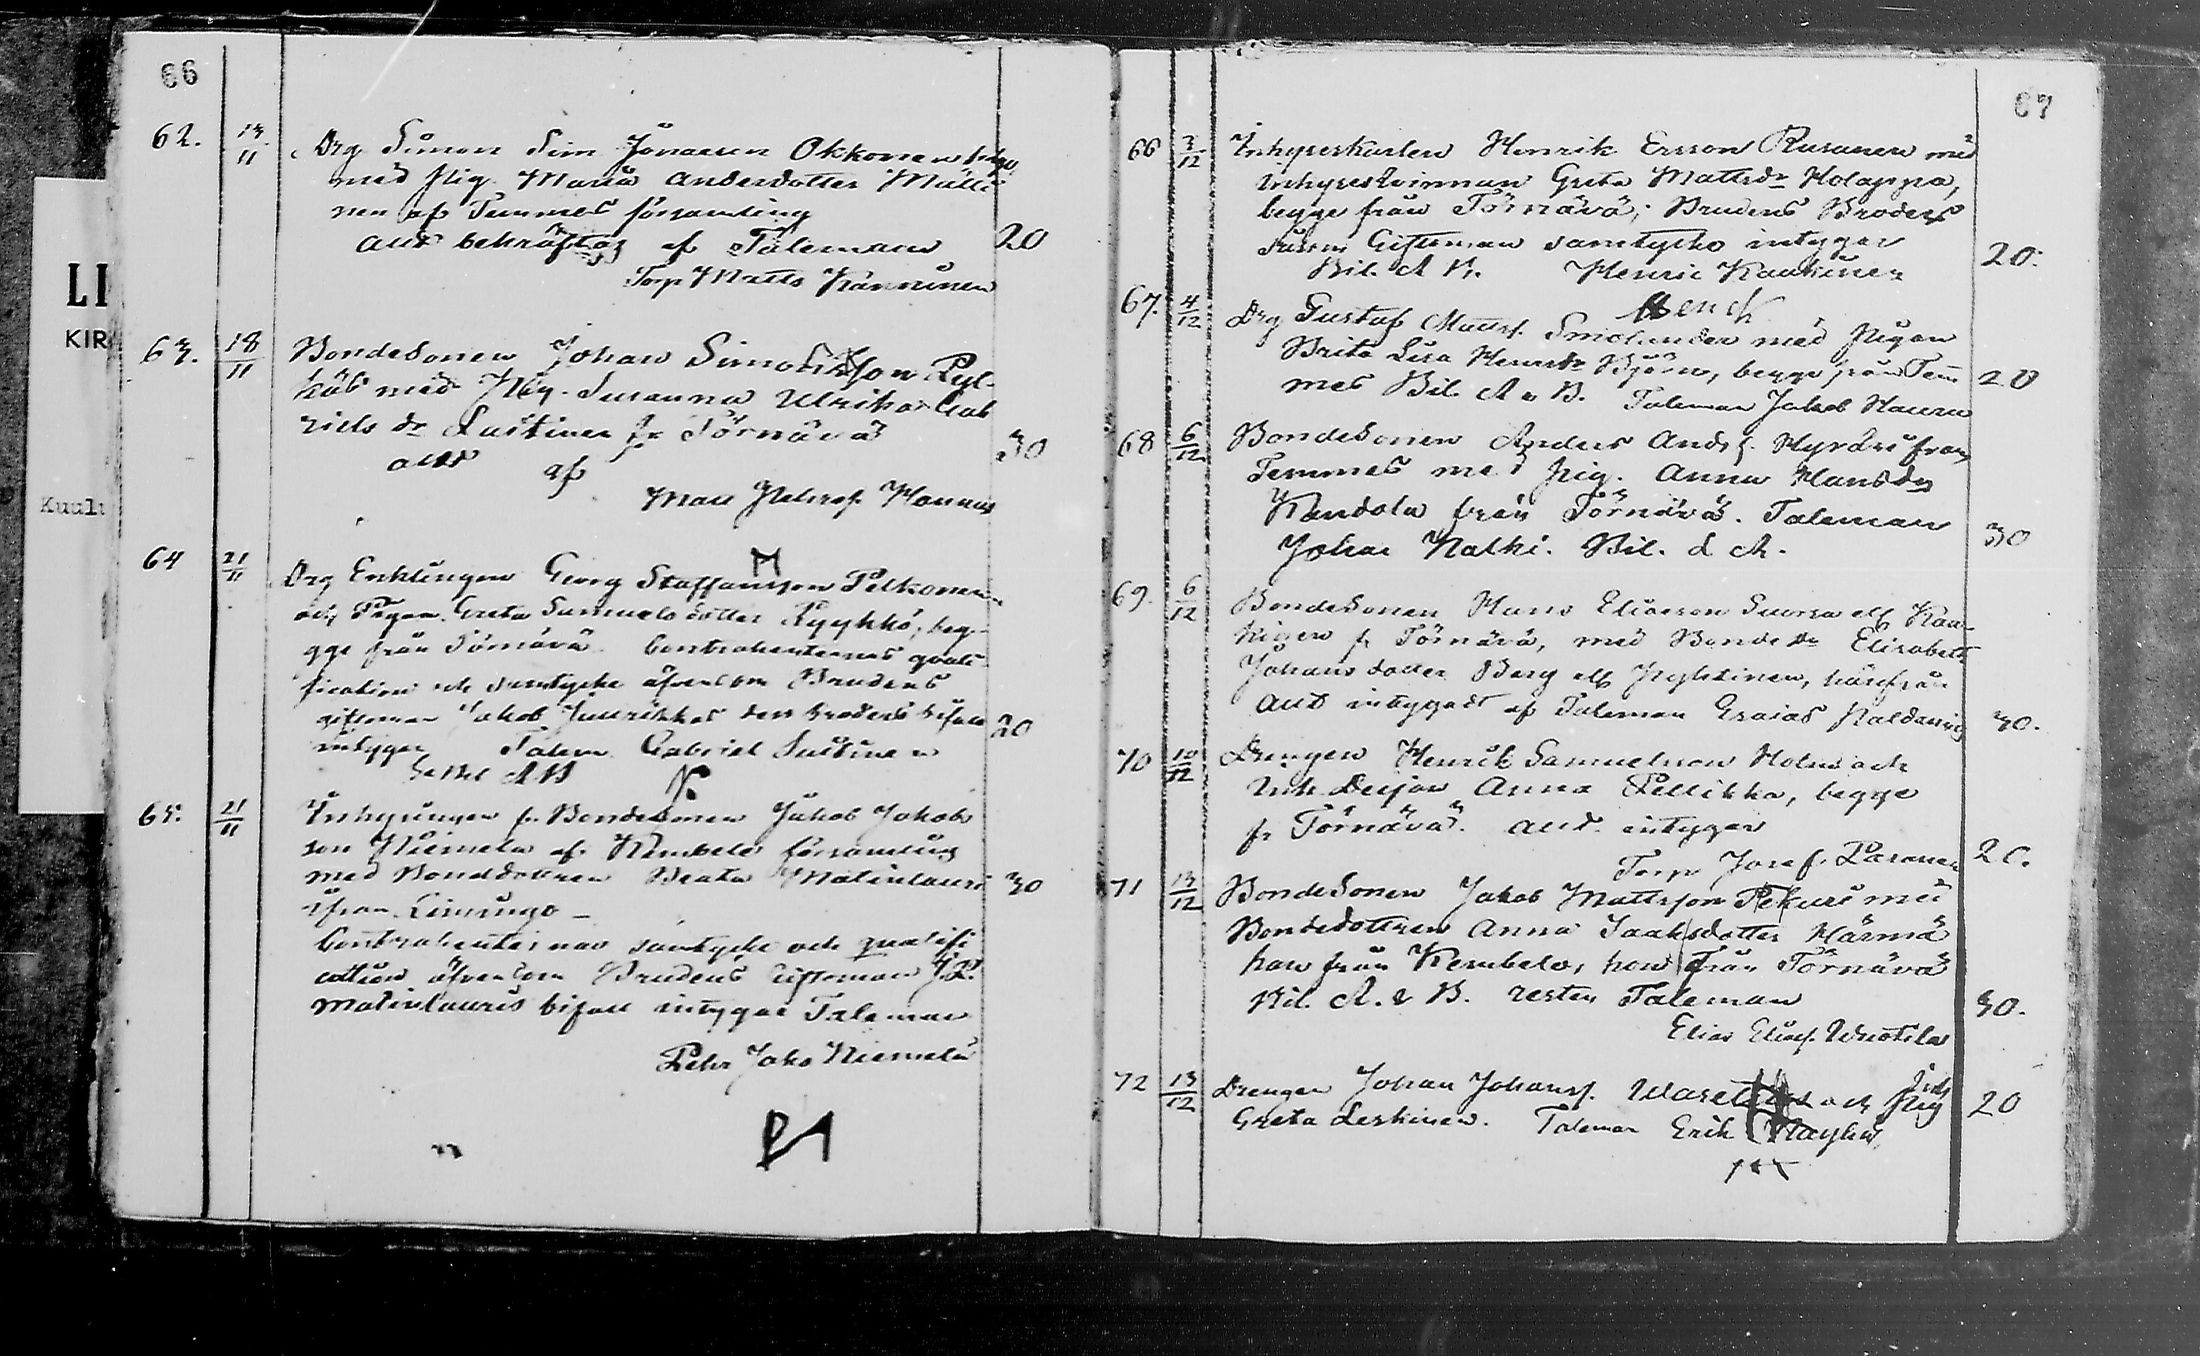 66
62. 13/11 Drg Simon Sim Jönsson Okkonen
med pig. Maria Andersdotter Mälli
nen af Temmes församling
aut bekräftas af Talemann 20
Torp Matts Känninen
LI
KIR
Kuul
63. 18/11 Bondesonen Johan Simonsson Pyl-
käs med Pig. Susanna Ulrika Gab
riels dr Lustinen fr Törnävä 30
aut af
64 21/11 Drg Enklingen Georg Staffansson Pelkonen
och Pigan Greta Samuelsdotter Pyykkö, beg-
ge från Törnävä. Contrahenternas quali
fication och samtycke äfvensom Brudens
giftoman Jakob dess broders bifall 20
intygar Talem. Gabriel Lustinen
Se Bil A B
65. 21/11 Inhysingen fr. Bondesonen Jakob Jakobs
son Niemelä af Kembele församling
med Bonddottren Beata Matinlauri 30
ifrån Limingo –
Contrahenternas samtycke och qualifi
cation äfvensom Brudens Giftoman J. P.
Matinlauris bifall intygar Taleman
Pehr Jaks Niemelä
67
66 3/12 Inhyseskarlen Henrik Ersson Rusanen med
Inhyseskvinnan Greta Mattsdr Holappa,
begge från Törnävä; Brudens Broders
såsom Giftoman samtycke intygar 20.
Bil. A B. Henric Kaukinen
67. 4/12 Drg Gustaf Matts. Smolander med Pigan
Brita Lisa Henrsdr Björn, begge från Tem
mes Bil. A o B. Taleman Jakob Hannu 20
68 6/12 Bondesonen Anders Ands. Hyrkäs från
Temmes med pig. Anna Hansdr
Kandola från Törnävä. Taleman
Johan Halki. Bil. d A. 30
69. 6/12 Bondesonen Hans Eliasson Suorsa ell Kau-
kinen fr Törnävä, med Bondedr Elisabeth
Johansdotter Berg ell härifrån
aut intygadt af Taleman Esaias 30.
70 10/12 Drengen Henrik Samuelsson Holm och
Inh. Deijan Anna Pellikka, begge
fr Törnävä. aut. intygar
Torp Josef Paranen 20.
71 13/12 Bondesonen Jakob Mattsson Pekuri med
Bondedottren Anna Isaksdotter Härmä
han från Kembele, hon från Törnävä
Bil. A. o B. resten Taleman 30.
Elias Elias.
72 13/12 Drengen Johan Johans. och Pig
Greta Leskinen. Taleman Erik 20